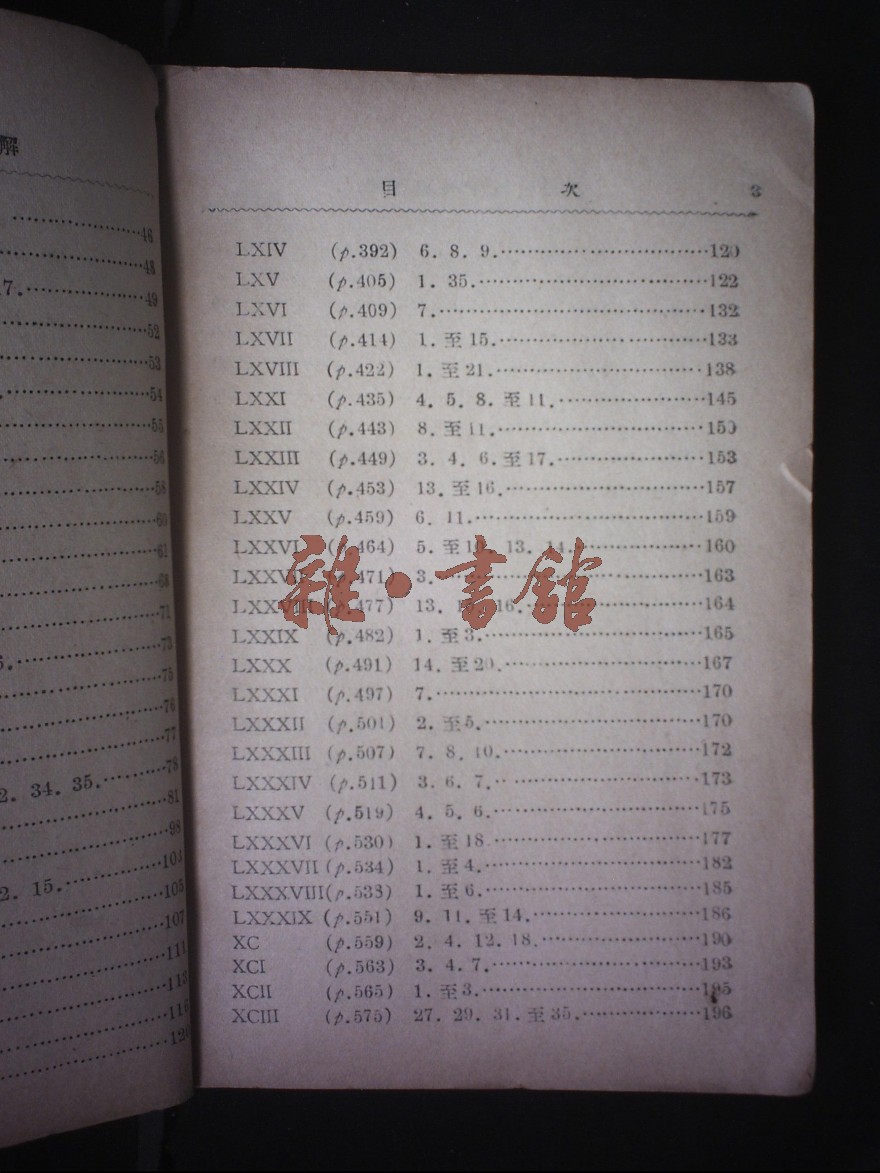 解
46
48
7. 49
52
53
54
55
56
58
60
61
68
71
73
75
76
77
2. 34. 35. 78
81
98
104
2. 15. 105
107
111
113
116
120
目 次 3
LXIV (p.392) 6. 8. 9. 120
LXV (p.405) 1. 35. 122
LXVI (p.409) 7. 132
LXVII (p.414) 1. 至 15. 133
LXVIII (p.422) 1. 至 21. 138
LXXI (p.435) 4. 5. 8. 至 11. 145
LXXII (p.443) 8. 至 11. 150
LXXIII (p.449) 3. 4. 6. 至 17. 153
LXXIV (p.453) 13. 至 16. 157
LXXV (p.459) 6. 11. 159
LXXVI (p.464) 5. 至 10. 13. 14. 160
LXXVII (p.471) 3. 163
LXXVIII (p.477) 13. 16. 164
LXXIX (p.482) 1. 至 3. 165
LXXX (p.491) 14. 至 20. 167
LXXXI (p.497) 7. 170
LXXXII (p.501) 2. 至 5. 170
LXXXIII (p.507) 7. 8. 10. 172
LXXXIV (p.511) 3. 6. 7. 173
LXXXV (p.519) 4. 5. 6. 175
LXXXVI (p.530) 1. 至 18 177
LXXXVII (p.534) 1. 至 4. 182
LXXXVIII (p.533) 1. 至 6. 185
LXXXIX (p.551) 9. 11. 至 14. 186
XC (p.559) 2. 4. 12. 18. 190
XCI (p.563) 3. 4. 7. 193
XCII (p.565) 1. 至 3. 195
XCIII (p.575) 27. 29. 31. 至 35. 196
雜·書館